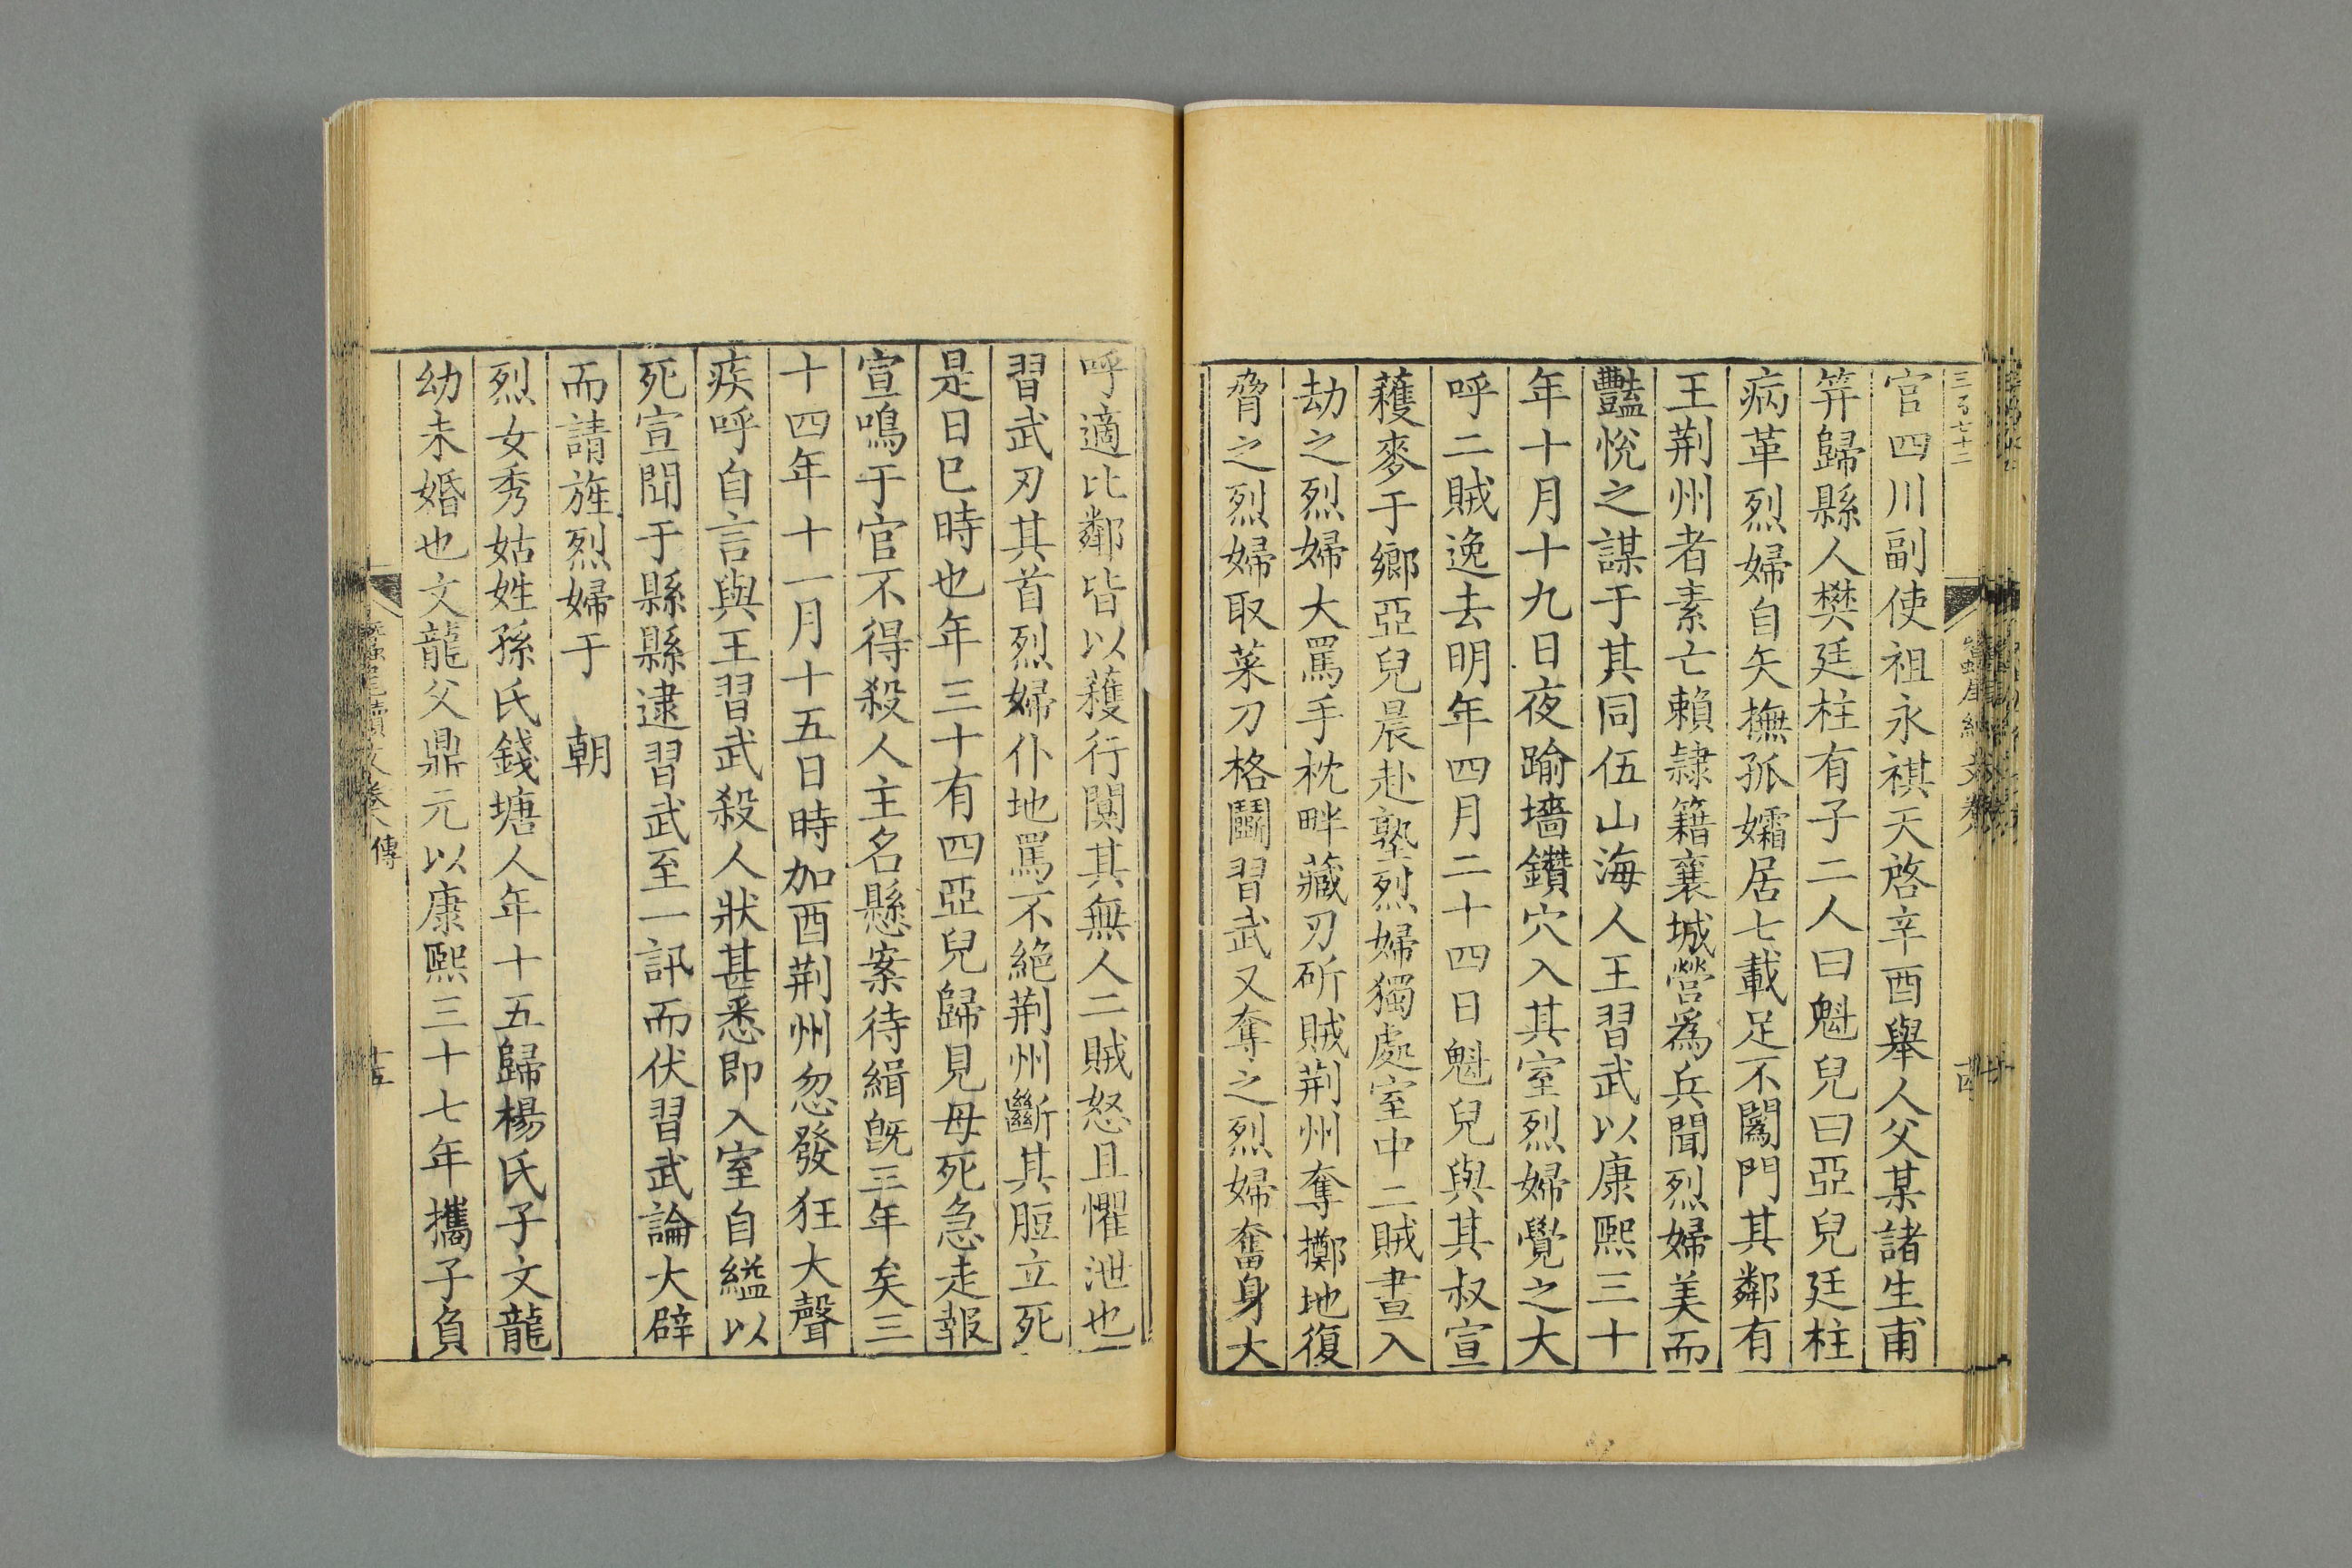 官四川副使祖永祺天啓辛酉舉人父某諸生甫
笄歸縣人樊廷柱有子二人曰魁兒曰亞兒廷柱
病革烈婦自矢撫孤孀居七載足不闖門其鄰有
王荆州者素亡賴隷籍襄城營爲兵聞烈婦美而
豔悅之謀于其同伍山海人王習武以康熙三十
年十月十九日夜踰墻鑽穴入其室烈婦覺之大
呼二賊逸去明年四月二十四日魁兒與其叔宣
穫麥于鄉亞兒晨赴塾烈婦獨處室中二賊晝入
劫之烈婦大罵手枕畔藏刃斫賊荆州奪擲地復
脅之烈婦取菜刀格鬭習武又奪之烈婦奮身大
呼適比鄰皆以穫行闃其無人二賊怒且懼泄也
習武刃其首烈婦仆地罵不絶荆州斷其脰立死
是日巳時也年三十有四亞兒歸見母死急走報
宣鳴于官不得殺人主名懸案待緝旣三年矣三
十四年十一月十五日時加酉荆州忽發狂大聲
疾呼自言與王習武殺人狀甚悉即入室自縊以
死宣聞于縣縣逮習武至一訊而伏習武論大辟
而請旌烈婦于　朝
烈女秀姑姓孫氏錢塘人年十五歸楊氏子文龍
幼未婚也文龍父鼎元以康熙三十七年攜子負
傳